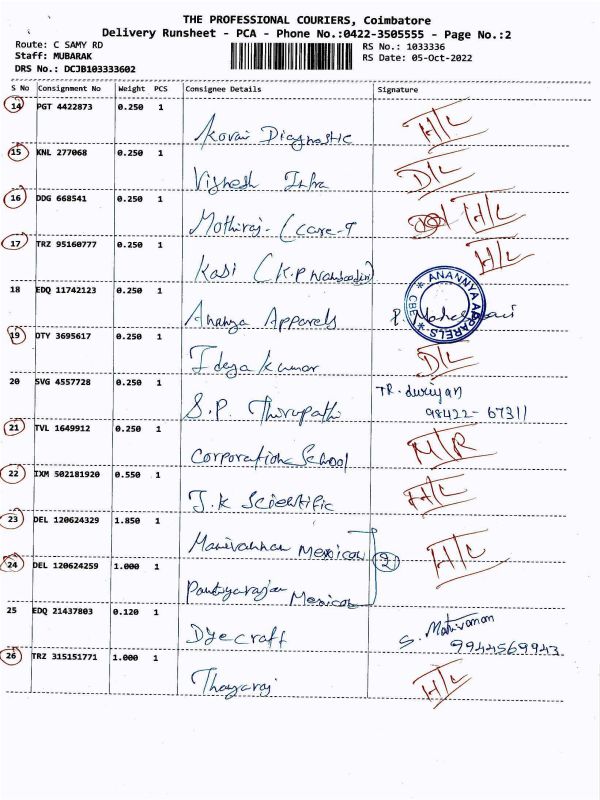 THE PROFESSIONAL COURIERS, Coimbatore
Delivery Runsheet - PCA - Phone No.:0422-3505555 - Page No.:2
Route: C SAMY RD
Staff: MUBARAK
DRS No.: DCJB103333602
RS No.: 1033336
RS Date: 05-Oct-2022
S No Consignment No Weight PCS Consignee Details Signature
14 PGT 4422873 0.250 1
Kovai Diagnostic H/L
15 KNL 277068 0.250 1
Vignesh Infra D/L
16 DDG 668541 0.250 1
Mothiraj - (care-T H/L
17 TRZ 95160777 0.250 1
Kasi (K.P H/L
18 EDQ 11742123 0.250 1
Ananya Apparels P.
* ANANNYA APPARELS * CBE
19 OTY 3695617 0.250 1
Idayakumar D/L
20 SVG 4557728 0.250 1
S.P. Thirupathi TR.
98422-67311
21 TVL 1649912 0.250 1
Corporation School M/R
22 IXM 502181920 0.550 1
J.K Scientific H/L
23 DEL 120624329 1.850 1
Manivannan Mexican 2 H/L
24 DEL 120624259 1.000 1
Pandyarajan Mexican
25 EDQ 21437803 0.120 1
Dyecraft S. Manivanan
9944569943
26 TRZ 315151771 1.000 1
Thayaraj H/L